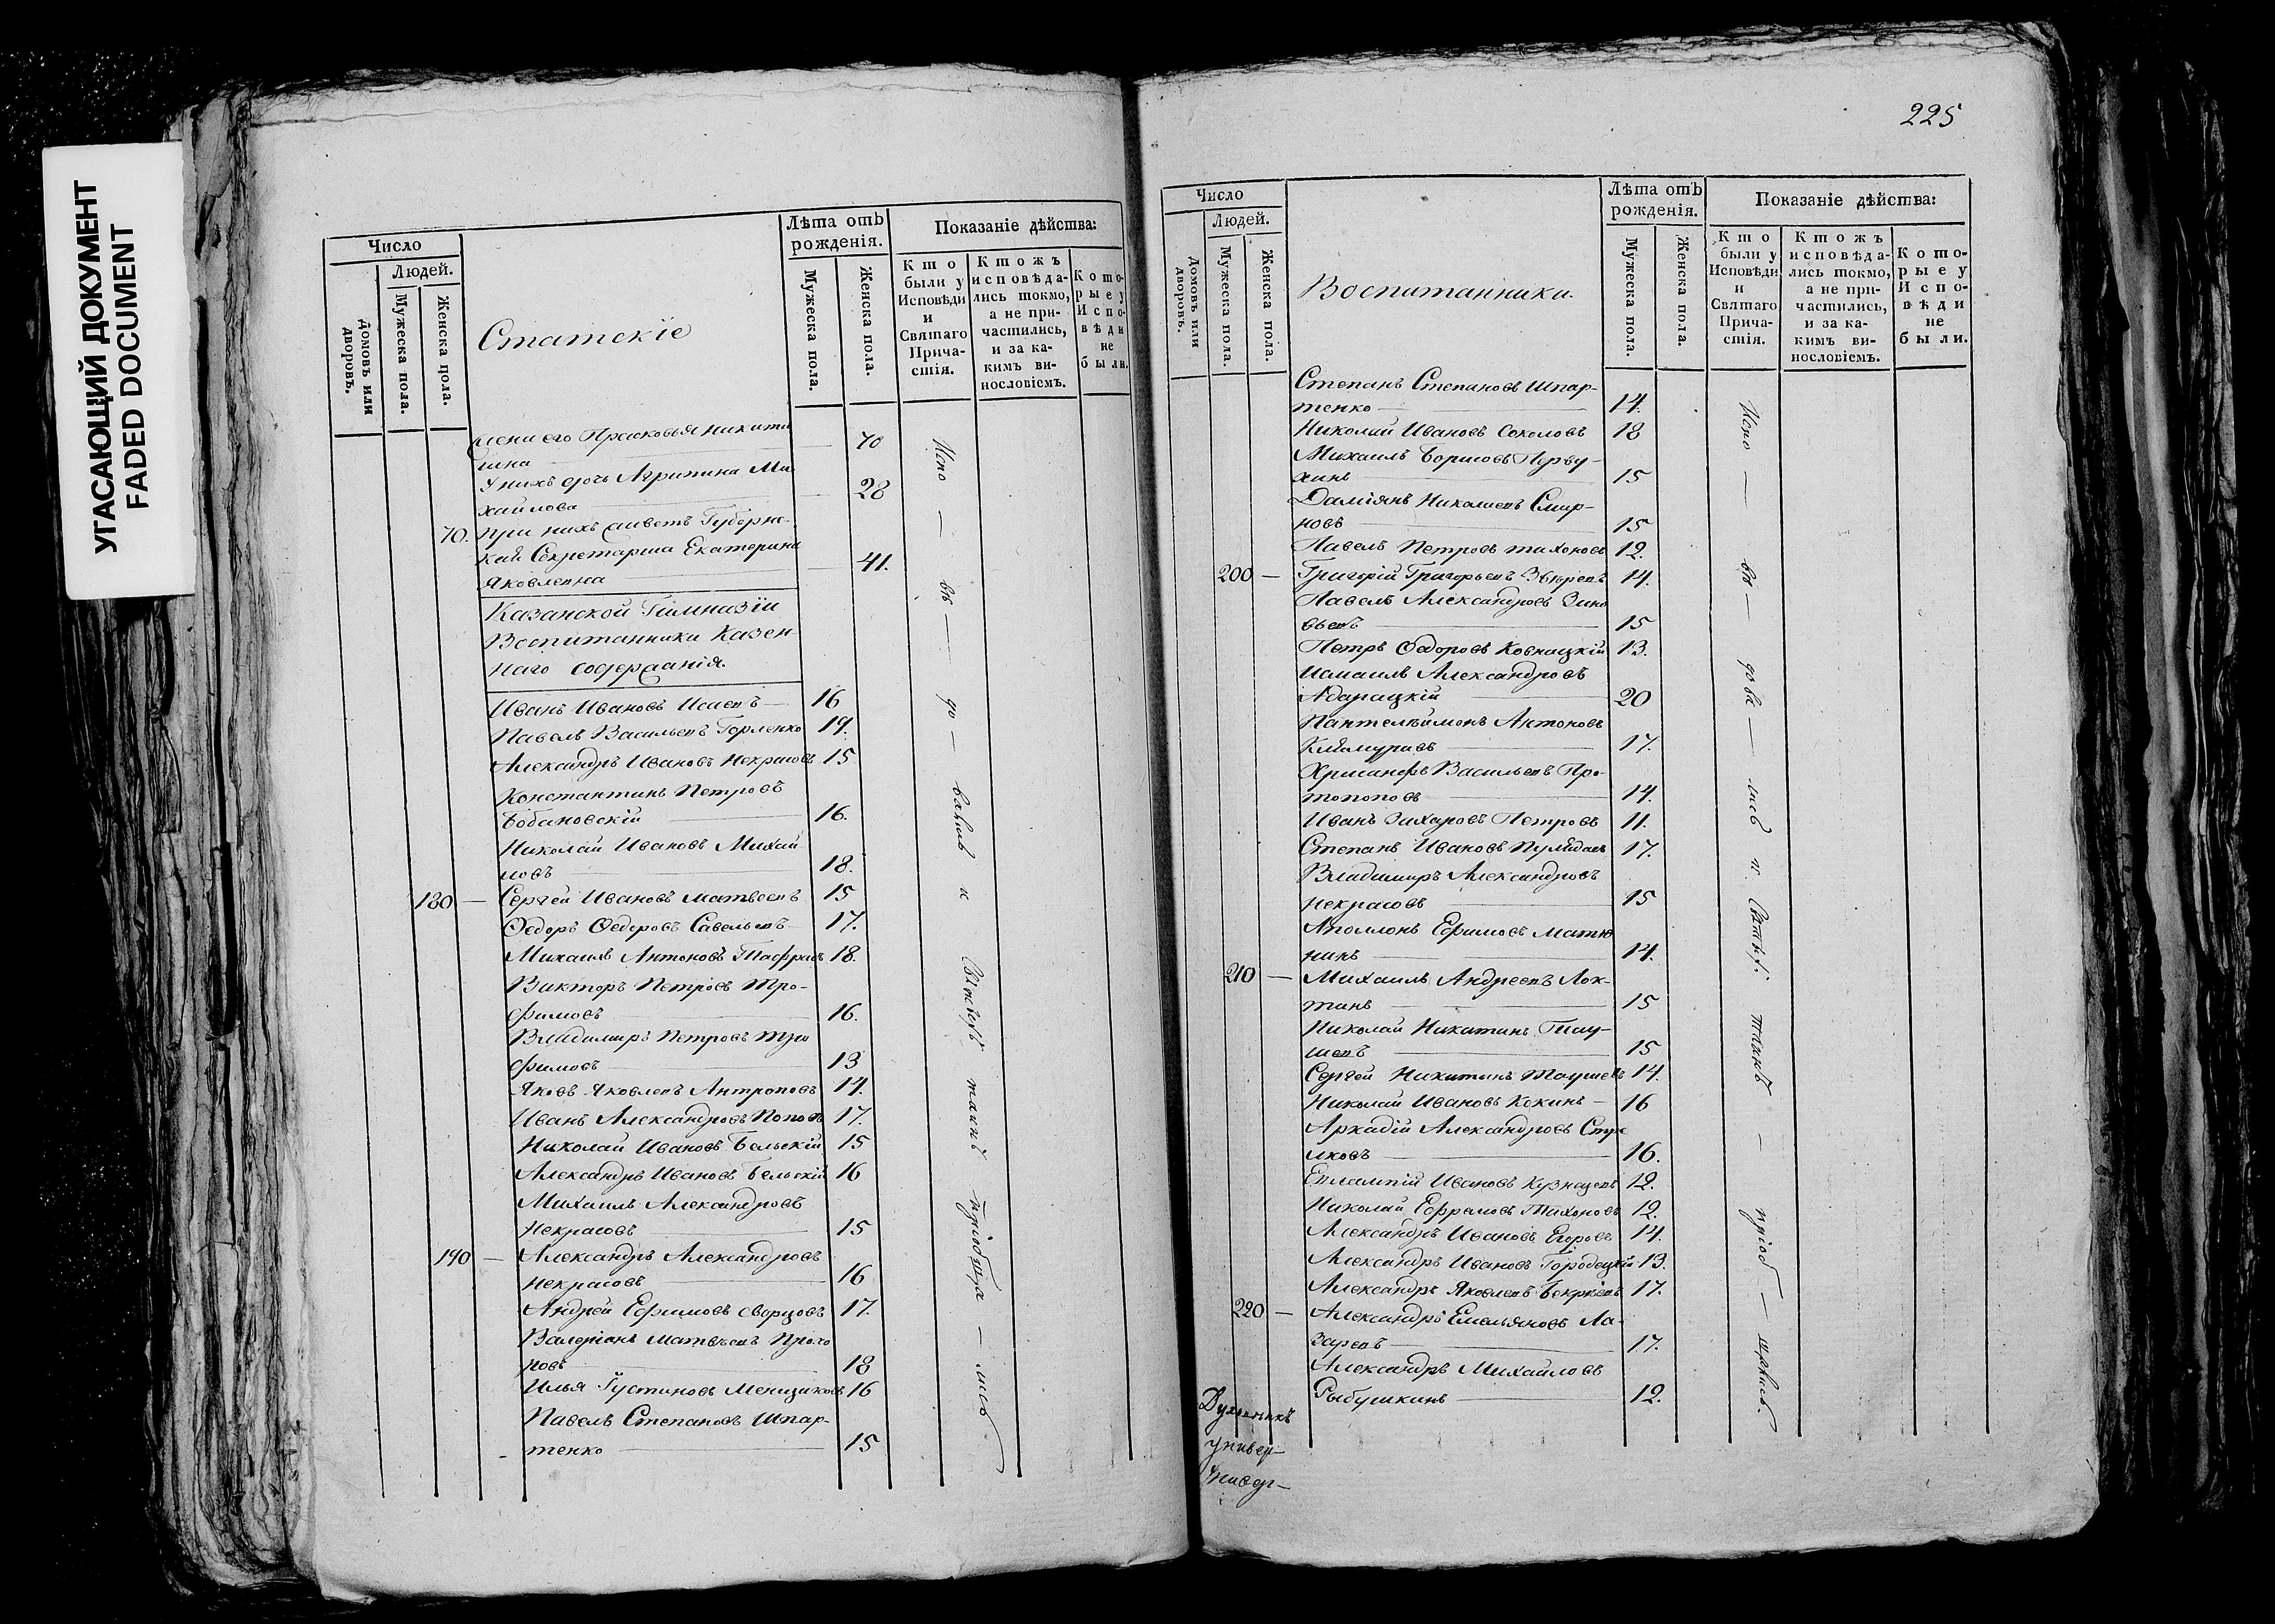 УГАСАЮЩИЙ ДОКУМЕНТ
FADED DOCUMENT
Число
Людей.
Домовъ или дворовъ.
Мужеска пола.
Женска пола.
Статскіе
Лѣта отъ
рожденія.
Мужеска пола.
Женска пола.
Показаніе дѣйства:
Кто
были у
Исповѣди
и
Святаго
Прича-
стія.
Ктожъ
исповѣда-
лись токмо,
а не при-
частились,
и за ка-
кимъ ви-
нословіемъ.
Кото-
рые у
Испо-
вѣди
не
были.
его Прасковья Никити
шна 70
У нихъ дочь Агрипина Ми
хайлова 28
70. При нихъ живетъ Губернс-
кая Секретарша Екатерина
Яковлевна 41.
Казанской Гимназіи
Воспитанники Казен-
наго содержанія.
Иванъ Ивановъ Исаевъ 16
Павелъ Васильевъ Горленко 14.
Александръ Ивановъ Некрасовъ 15
Константинъ Петровъ
Бобановскій 16.
Николай Ивановъ Михай
ловъ 18.
180 — Сергей Ивановъ Матвеевъ 15
Ѳедоръ Ѳедоровъ Савельевъ 17.
Михаилъ Антоновъ 18.
Викторъ Петровъ Тро-
фимовъ 16.
Владимиръ Петровъ Тро
фимовъ 13
Яковъ Яковлевъ Антроповъ 14.
Иванъ Александровъ Поповъ 17.
Николай Ивановъ Бельскій 15
Александръ Ивановъ Бельскій 16
Михаилъ Александровъ
Некрасовъ 15
190 — Александръ Александровъ
Некрасовъ 16
Андрей Ефимовъ Сворцовъ 17.
Валеріанъ Матвѣевъ Прохо
ровъ 18
Илья Густиновъ Менщиковъ 16
Павелъ Степановъ Шпар-
тенко 15
Испо — вѣ — до — вались и таинъ — лись
225
Число
Людей.
Домовъ или дворовъ.
Мужеска пола.
Женска пола.
Воспитанники.
Лѣта отъ
рожденія.
Мужеска пола.
Женска пола.
Показаніе дѣйства:
Кто
были у
Исповѣди
и
Святаго
Прича-
стія.
Ктожъ
исповѣда-
лись токмо,
а не при-
частились,
и за ка-
кимъ ви-
нословіемъ.
Кото-
рые у
Испо-
вѣди
не
были.
Степанъ Степановъ Шпар-
тенко 14.
Николай Ивановъ Соколовъ 18
Михаилъ Борисовъ Перву-
хинъ 15
Даміянъ Николаевъ Смир-
новъ 15
Павелъ Петровъ Тихоновъ 12.
200 — Григорій Григорьевъ 14.
Павелъ Александровъ Зино
вьевъ 15
Петръ Ѳедоровъ Ковницкій 13.
Измаилъ Александровъ
20
Пантелѣймонъ Антоновъ
17.
Хрисанфъ Васильевъ Про-
топоповъ 14.
Иванъ Захаровъ Петровъ 11.
Степанъ Ивановъ 17.
Владимиръ Александровъ
Некрасовъ 15
Аполлонъ Ефимовъ Матю
нинъ 14.
210 — Михаилъ Андреевъ Лок-
тинъ 15
Николай Никитинъ Тау-
шевъ 15
Сергей Никитинъ Таушевъ 14.
Николай Ивановъ Кокинъ — 16
Аркадій Александровъ Стре
лковъ 16.
Евлампій Ивановъ Кузнецовъ 12.
Николай Ефремовъ Тихоновъ 12.
Александръ Ивановъ Егоровъ 14.
Александръ Ивановъ Городецкій 13.
Александръ Яковлевъ 17.
220 — Александръ Емельяновъ Ла-
заревъ 17.
Александръ Михайловъ
Рыбушкинъ 12.
Испо — вѣ — дова — лись и Святых. таинъ — пріоб — щились.
Духовникъ
Универ-